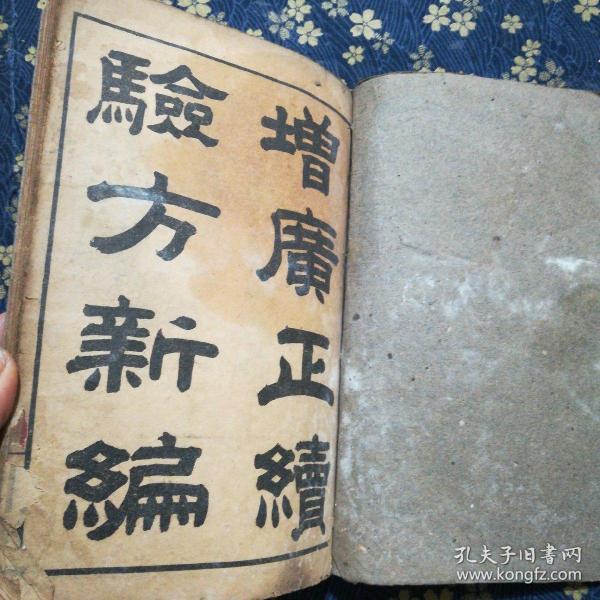 增廣正續
驗方新編
孔夫子旧書网
www.kongfz.com